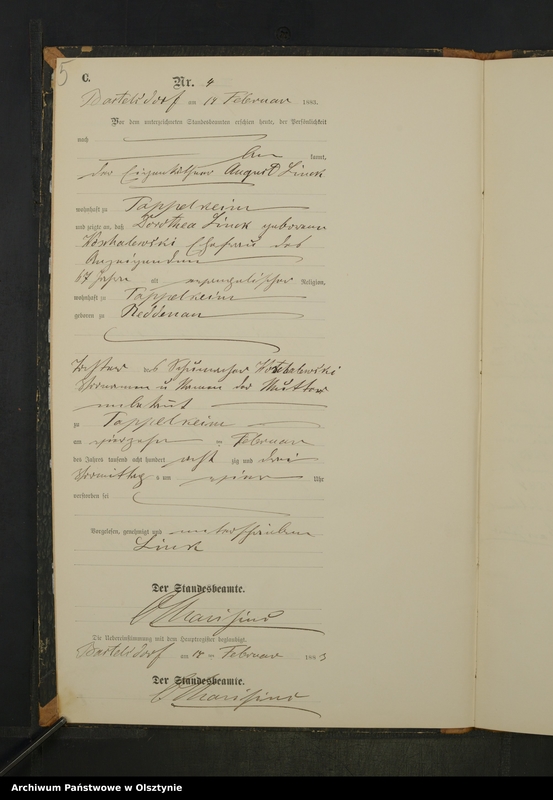 5
C.
Nr. 4
Bartelsdorf am 18 Februar 1883.
Vor dem unterzeichneten Standesbeamten erschien heute, der Persönlichkeit
nach
kannt,
der Eigenkäthner August Linck
wohnhaft zu Toppelkeim
und zeigte an, daß Dorothea Linck geborene
Koschalewski Ehefrau des
Anzeigenden
67 Jahre alt evangelischer Religion,
wohnhaft zu Toppelkeim
geboren zu Reddenau
Tochter des Schumacher Koschalewski
Vornamen u Namen der Mutter
unbekannt
zu Toppelkeim
am vierzehn ten Februar
des Jahres tausend acht hundert acht zig und drei
Vormittag s um Uhr
verstorben sei
Vorgelesen, genehmigt und unterschrieben
Linck
Der Standesbeamte.
Die Uebereinstimmung mit dem Hauptregister beglaubigt.
Bartelsdorf am 18 ten Februar 1883
Der Standesbeamte.
Archiwum Państwowe w Olsztynie